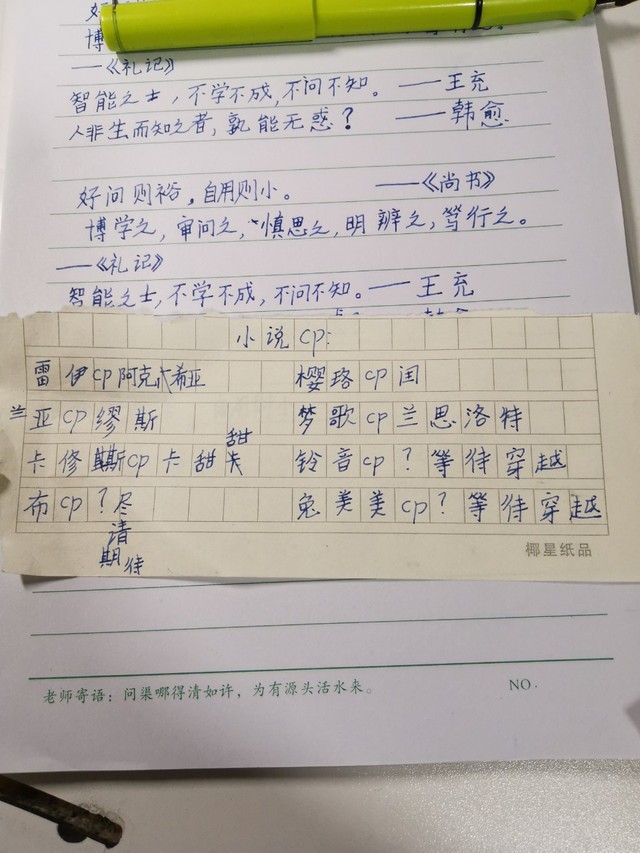 好
博
——《礼记》
智能之士，不学不成，不问不知。 ——王充
人非生而知之者，孰能无惑？ ——韩愈
好问则裕，自用则小。 ——《尚书》
博学之，审问之，慎思之，明辨之，笃行之。
——《礼记》
智能之士，不学不成，不问不知。——王充
小说cp：
雷伊cp阿克希亚 樱珞cp闰
兰亚cp缪斯 梦歌cp兰思洛特
卡修斯cp卡甜甜 铃音cp？等待穿越
布cp？尽请期待 兔美美cp？等待穿越
椰星纸品
老师寄语：问渠哪得清如许，为有源头活水来。 NO.